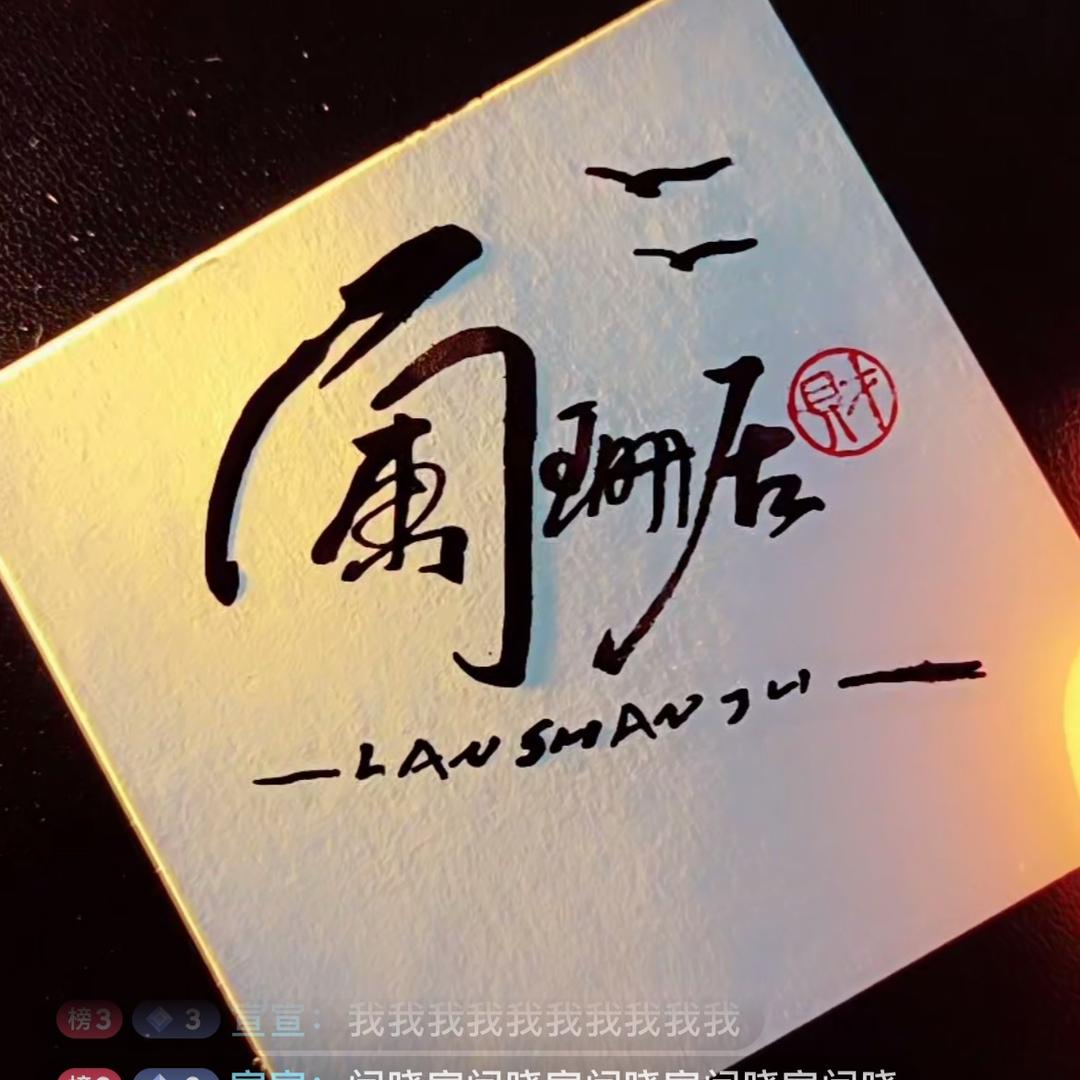 阑珊居
財
LANSHANJU
榜3 3 宣宣：我我我我我我我我我我